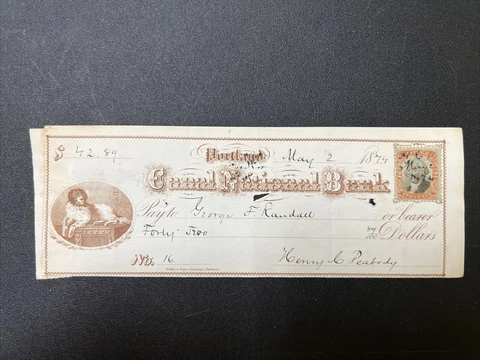 $ 42.89
Portland, May 2 1874
National Bank
Pay to George F. Randall
or bearer
Forty Two 89/100 Dollars
No. 16
Henry C Peabody